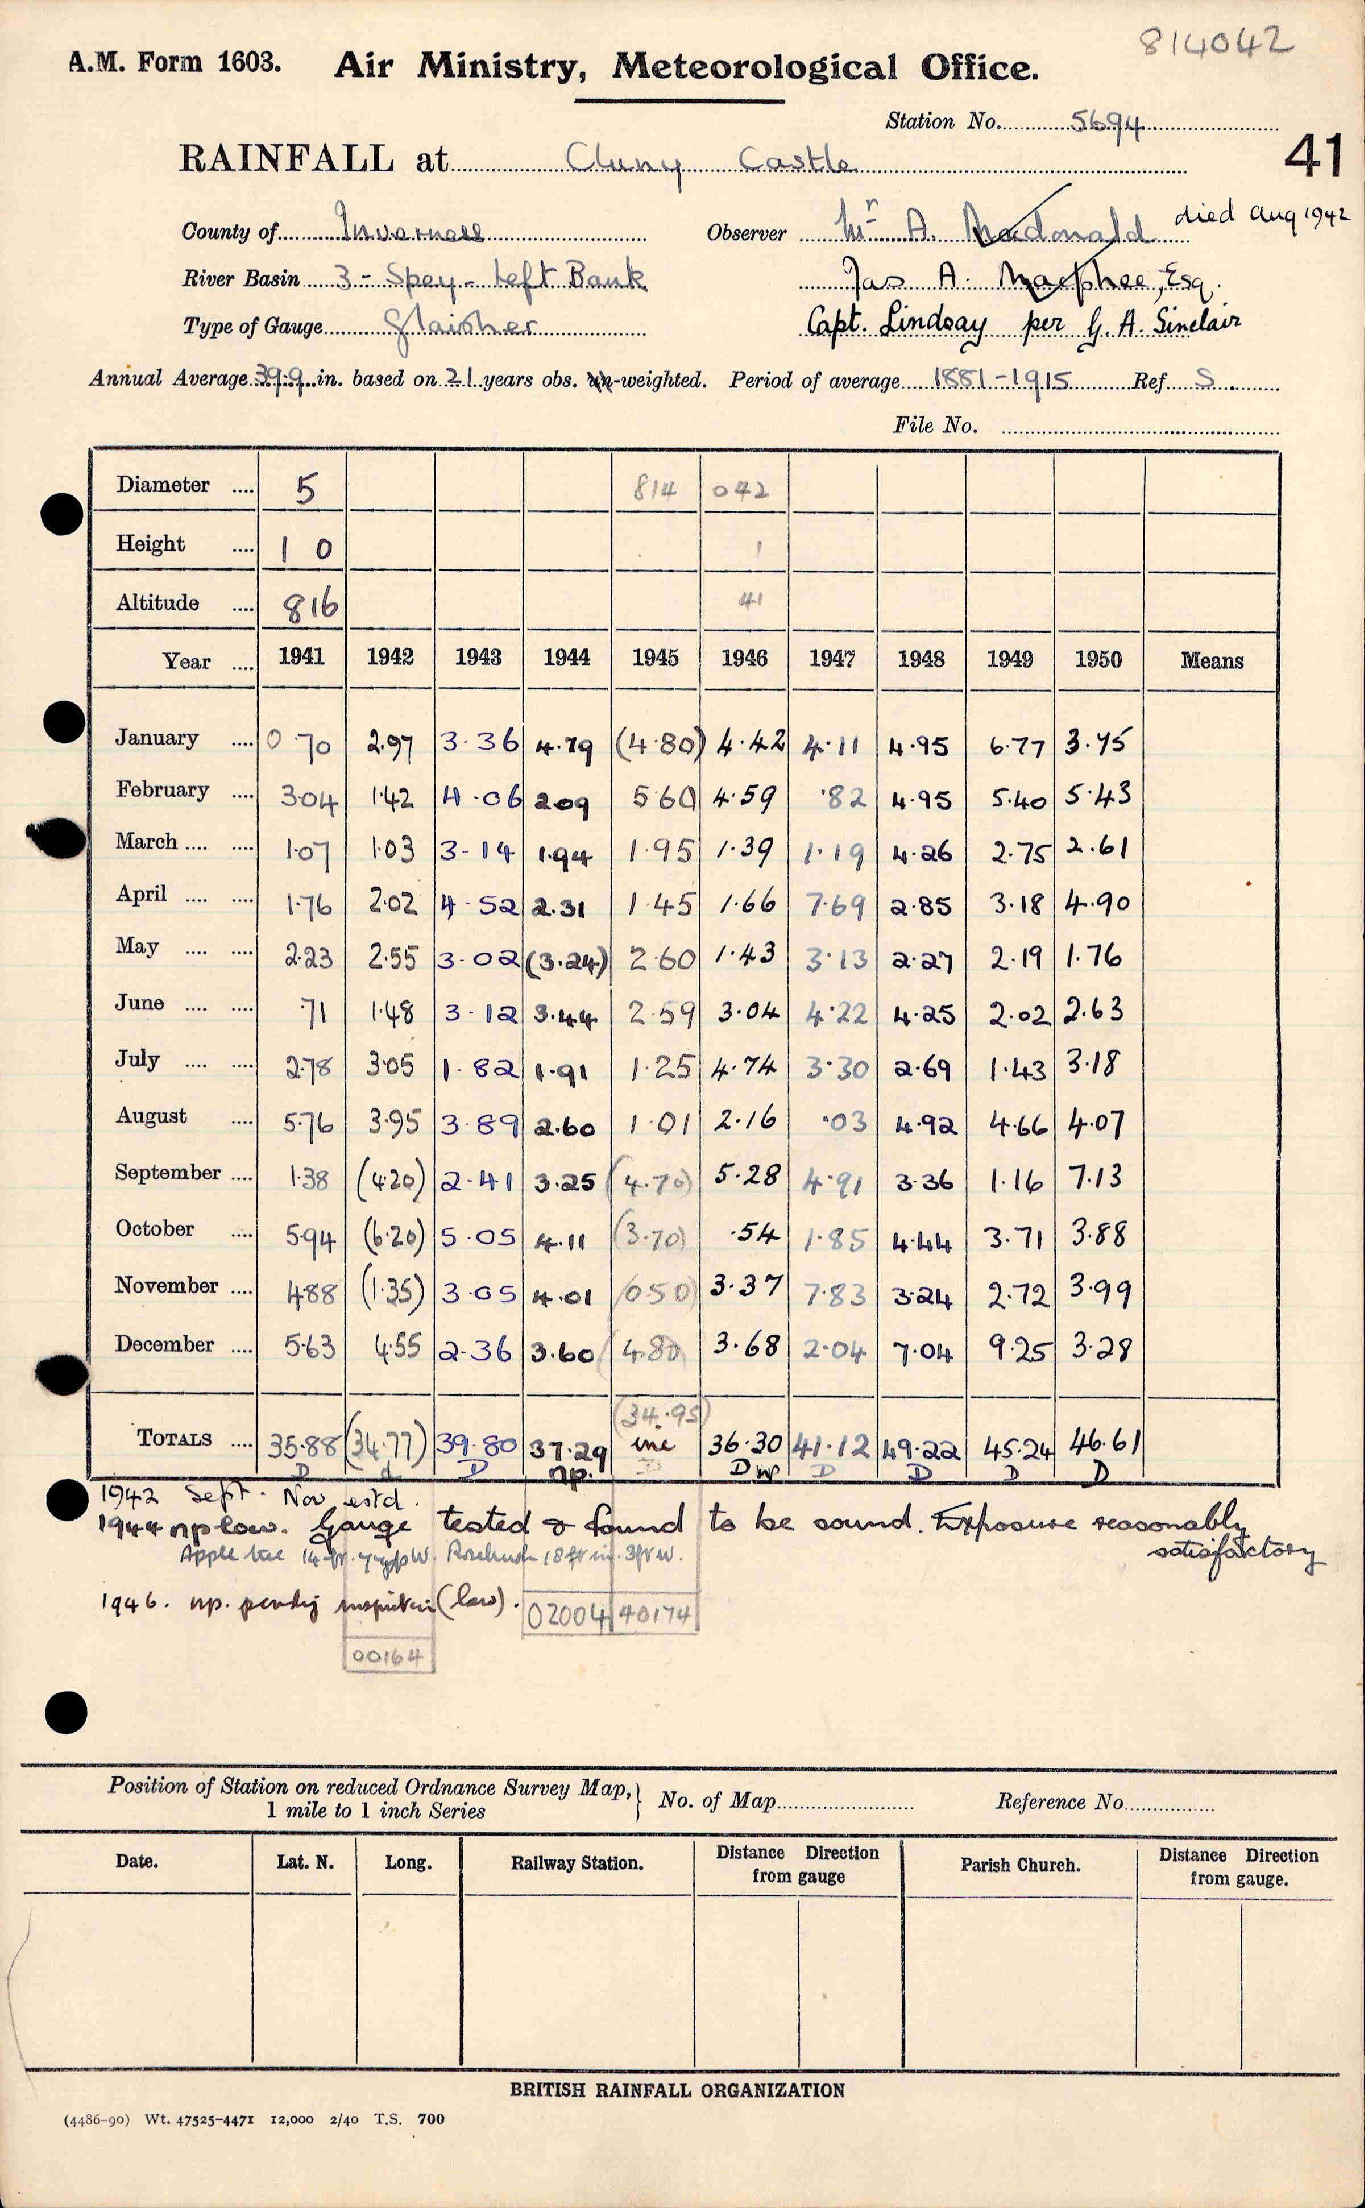 814042
A.M. Form 1603. Air Ministry, Meteorological Office.
Station No. 5694
41
RAINFALL at Cluny Castle
County of Inverness Observer Mr A. Macdonald died Aug 1942
River Basin 3 - Spey - Left Bank Jas A. Macphee, Esq.
Type of Gauge Glaisher Capt. Lindsay per G. A. Sinclair
Annual Average 39.9 in. based on 21 years obs. un-weighted. Period of average 1881-1915 Ref S
File No.
Diameter 5 814 042
Height 1 0 1
Altitude 816 41
Year 1941 1942 1943 1944 1945 1946 1947 1948 1949 1950 Means
January 0.70 2.97 3.36 4.79 (4.80) 4.42 4.11 4.95 6.77 3.75
February 3.04 1.42 4.06 2.09 5.60 4.59 .82 4.95 5.40 5.43
March 1.07 1.03 3.14 1.94 1.95 1.39 1.19 4.26 2.75 2.61
April 1.76 2.02 4.52 2.31 1.45 1.66 7.69 2.85 3.18 4.90
May 2.23 2.55 3.02 (3.24) 2.60 1.43 3.13 2.27 2.19 1.76
June .71 1.48 3.12 3.44 2.59 3.04 4.22 4.25 2.02 2.63
July 2.78 3.05 1.82 1.91 1.25 4.74 3.30 2.69 1.43 3.18
August 5.76 3.95 3.89 2.60 1.01 2.16 .03 4.92 4.66 4.07
September 1.38 (4.20) 2.41 3.25 (4.70) 5.28 4.91 3.36 1.16 7.13
October 5.94 (6.20) 5.05 4.11 (3.70) .54 1.85 4.44 3.71 3.88
November 4.88 (1.35) 3.05 4.01 (0.50) 3.37 7.83 3.24 2.72 3.99
December 5.63 4.55 2.36 3.60 (4.80) 3.68 2.04 7.04 9.25 3.28
(34.95)
TOTALS 35.88 (34.77) 39.80 37.29 inc 36.30 41.12 49.22 45.24 46.61
D d D np. D D np D D D D
1942 Sept - Nov estd.
1944 np low. Gauge tested & found to be sound. Exposure reasonably
satisfactory
Apple tree 14 ft. W. Rosebush 18 ft 3 ft W.
1946. np. pending inspection (low). 02004 40174
00164
Position of Station on reduced Ordnance Survey Map,
1 mile to 1 inch Series
No. of Map Reference No
Date. Lat. N. Long. Railway Station. Distance Direction from gauge Parish Church. Distance Direction from gauge.
BRITISH RAINFALL ORGANIZATION
(4486-90) Wt. 47525-4471 12,000 2/40 T.S. 700